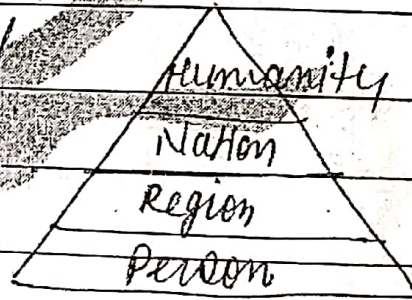 Humanity
Nation
Region
Person